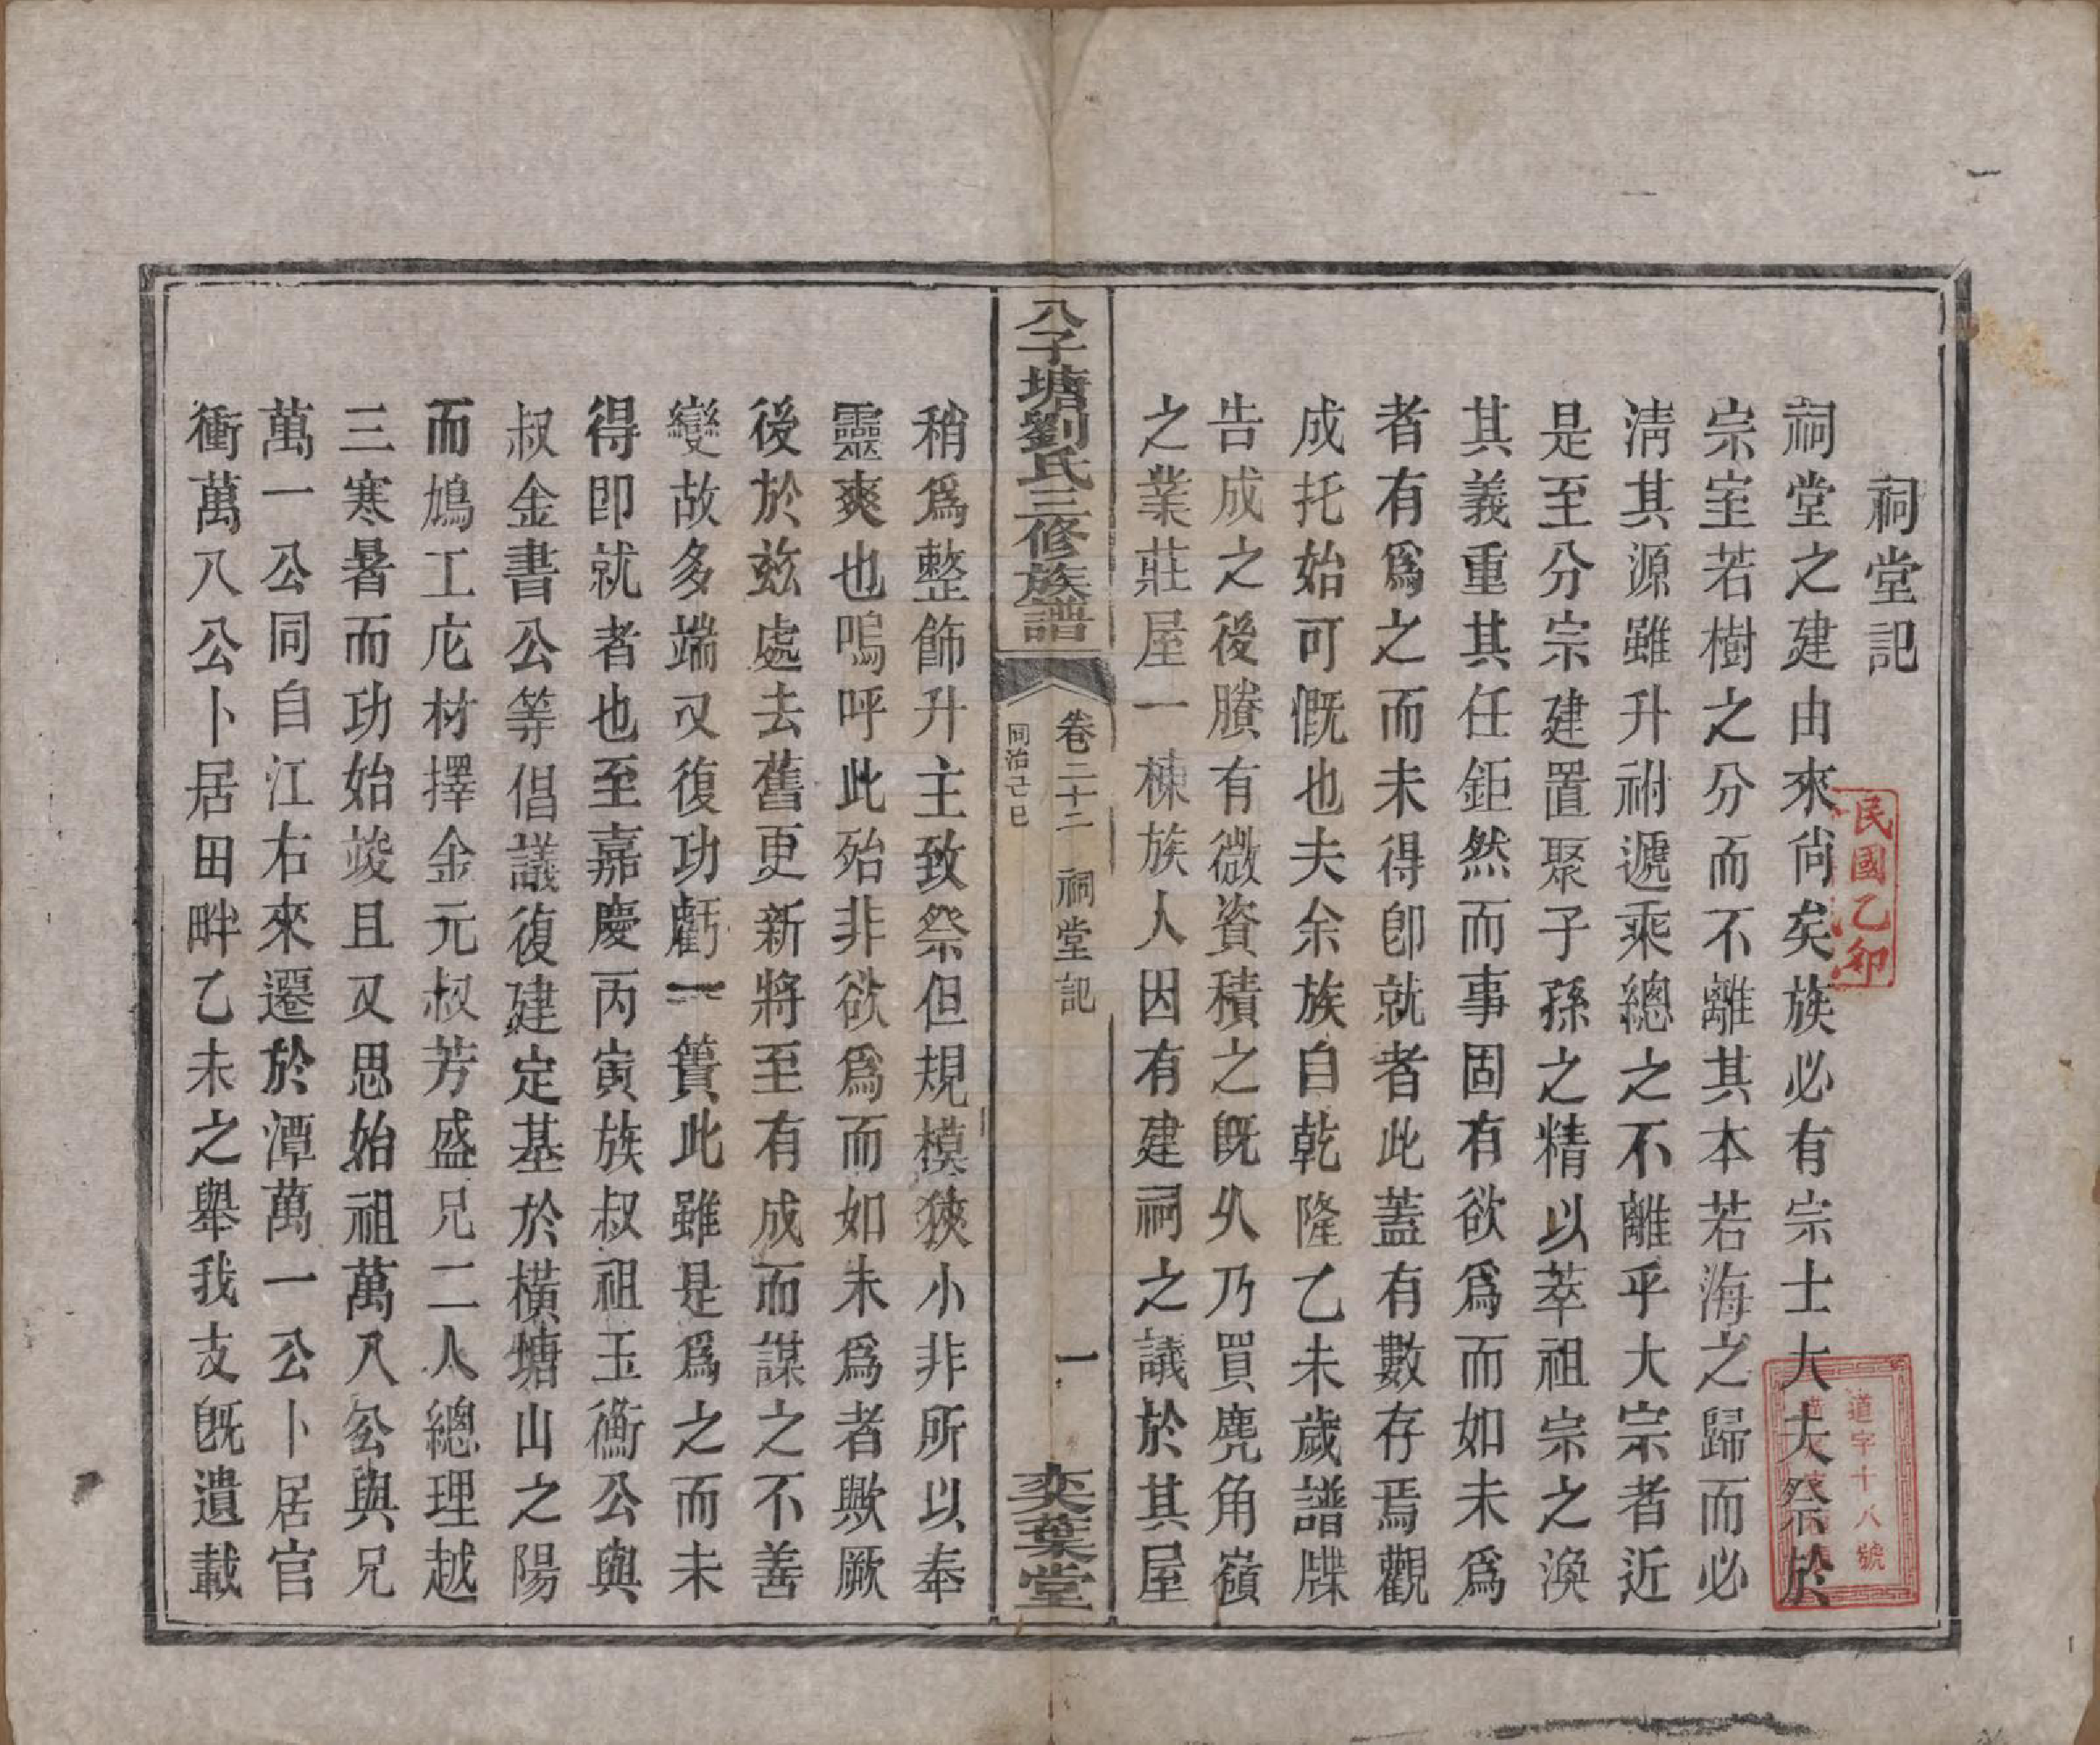 祠堂記
祠堂之建由來尚矣族必有宗士大夫祭於
宗室若樹之分而不離其本若海之歸而必
淸其源雖升祔遞乘總之不離乎大宗者近
是至分宗建置聚子孫之精以萃祖宗之渙
其義重其任鉅然而事固有欲爲而如未爲
者有爲之而未得卽就者此蓋有數存焉觀
成托始可慨也夫余族自乾隆乙未歲譜牒
告成之後賸有微資積之旣久乃買麂角嶺
之業莊屋一棟族人因有建祠之議於其屋
八子塘劉氏三修族譜
卷二十二 祠堂記 一
同治己巳
奕葉堂
稍爲整飾升主致祭但規模狹小非所以奉
靈爽也嗚呼此殆非欲爲而如未爲者歟厥
後於玆處去舊更新將至有成而謀之不善
變故多端又復功虧一簣此雖是爲之而未
得即就者也至嘉慶丙寅族叔祖玉衡公與
叔金書公等倡議復建定基於橫塘山之陽
而鳩工庀材擇金元叔芳盛兄二人總理越
三寒暑而功始竣且又思始祖萬八公與兄
萬一公同自江右來遷於潭萬一公卜居官
衝萬八公卜居田畔乙未之舉我支旣遺載
民國乙卯
道字十八號